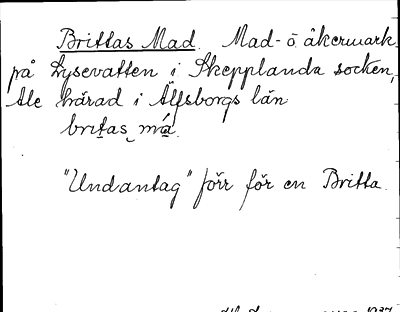 Brittas Mad. Mad- o. åkermark
på Lysevatten i Skepplanda socken,
Ale härad i Älfsborgs län
britas má.
"Undantag" förr för en Britta.
1937